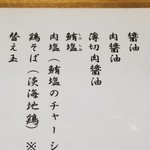 醤油
肉醤油
薄切肉醤油
鮪塩
肉塩(鮪塩のチャーシ
鶏そば(淡海地鶏)※
替え玉